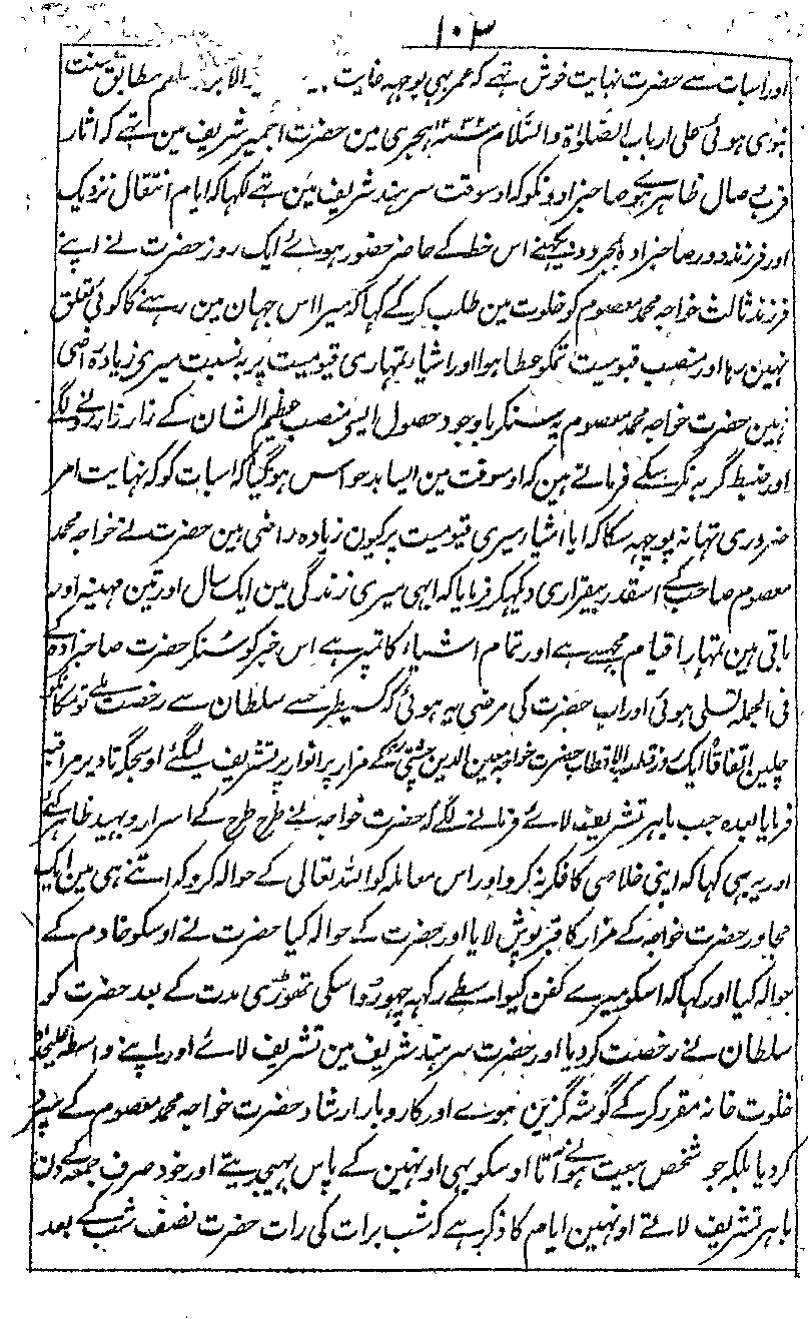 ۱۰۳
اور اسبات سے حضرت نہایت خوش تہے کہ عمر بہی بوجہہ غایت مطابق سنت
نبوی ہوئی علی اربابہا الصلوٰۃ والسلام ہجری مین حضرت اجمیر شریف مین تہے کہ اثار
قرب وصال ظاہر ہوے صاحبزادونکو کہ اوسوقت سرہند شریف مین تہے لکہا کہ ایام انتقال نزدیک
اور فرزند دور صاحبزادہ بمجرد دیکہنے اس خط کے حاضر حضور ہوئے ایک روز حضرت نے اپنے
فرزند ثالث خواجہ محمد معصوم کو خلوت مین طلب کرکے کہا کہ میرا اس جہان مین رہنے کا کوئی تعلق
نہین رہا اور منصب قیومیت تمکو عطا ہوا اور اشیاء تمہاری قیومیت پر بہ نسبت میری زیادہ راضی
ہین حضرت خواجہ محمد معصوم یہ سنکر باوجود حصول ایسی منصب عظیم الشان کے زار زار رونے لگے
اور ضبط گریہ نکر سکے فرماتے ہین کہ اوسوقت مین ایسا بدحواس ہوگیا کہ اسبات کو کہ نہایت امر
ضروری تہا نہ پوچہہ سکا کہ ایا اشیاء میری قیومیت پر کیون زیادہ راضی ہین حضرت نے خواجہ محمد
معصوم صاحب کے اسقدر بیقراری دیکہکر فرمایا کہ ابہی میری زندگی مین ایک سال اور تین مہینہ اور
باقی ہین تمہارا قیام مجہسے ہے اور تمام اشیاء کا تمپر ہے اس خبر کو سنکر حضرت صاحبزادہ کے
فی الجملہ تسلی ہوئی اور اب حضرت کی مرضی یہ ہوئی کہ کسیطرحسے سلطان سے رخصت ملے تو مکانکو
چلین اتفاقاً ایک روز قطب الاقطاب حضرت خواجہ معین الدین چشتی کے مزار پر انوار پر تشریف لیگئے اوسجگہ تا دیر مراقبہ
فرمایا بعدہ جب باہر تشریف لائے فرمانے لگے کہ حضرت خواجہ نے طرح طرح کے اسرار و بہید ظاہر کئے
اور یہ بہی کہا کہ اپنی خلاصی کا فکر نہ کرو اور اس معاملہ کو اللہ تعالی کے حوالہ کرو کہ اتنے ہی مین ایک
مجاور حضرت خواجہ کے مزار کا قبر پوش لایا اور حضرت کے حوالہ کیا حضرت نے اوسکو خادم کے
حوالہ کیا اور کہا کہ اسکو میرے کفن کیواسطے رکہہ چہوڑو اسکی تھوڑسی مدت کے بعد حضرت کو
سلطان نے رخصت کردیا اور حضرت سرہند شریف مین تشریف لائے اور اپنے واسطہ علیحدہ
خلوت خانہ مقرر کرکے گوشہ گزین ہوے اور کاروبار ارشاد حضرت خواجہ محمد معصوم کے سپرد
کردیا بلکہ جو شخص بیعت ہونے آتا اوسکو بہی اونہین کے پاس بہیجدیتے اور خود صرف جمعہ کے دن
باہر تشریف لاتے اونہین ایام کا ذکر ہے کہ شب برات کی رات حضرت نصف شب کے بعد